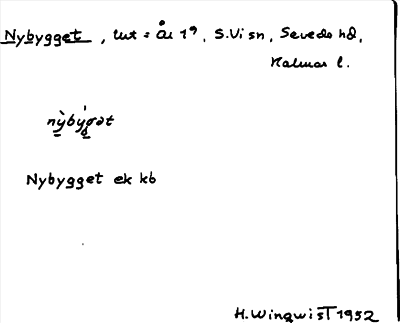 Nybygget, lht = Åi 1⁹, S.Vi sn, Sevede hd,
Kalmar l.
nỳbýgət
Nybygget ek kb
H. Wingwist 1952